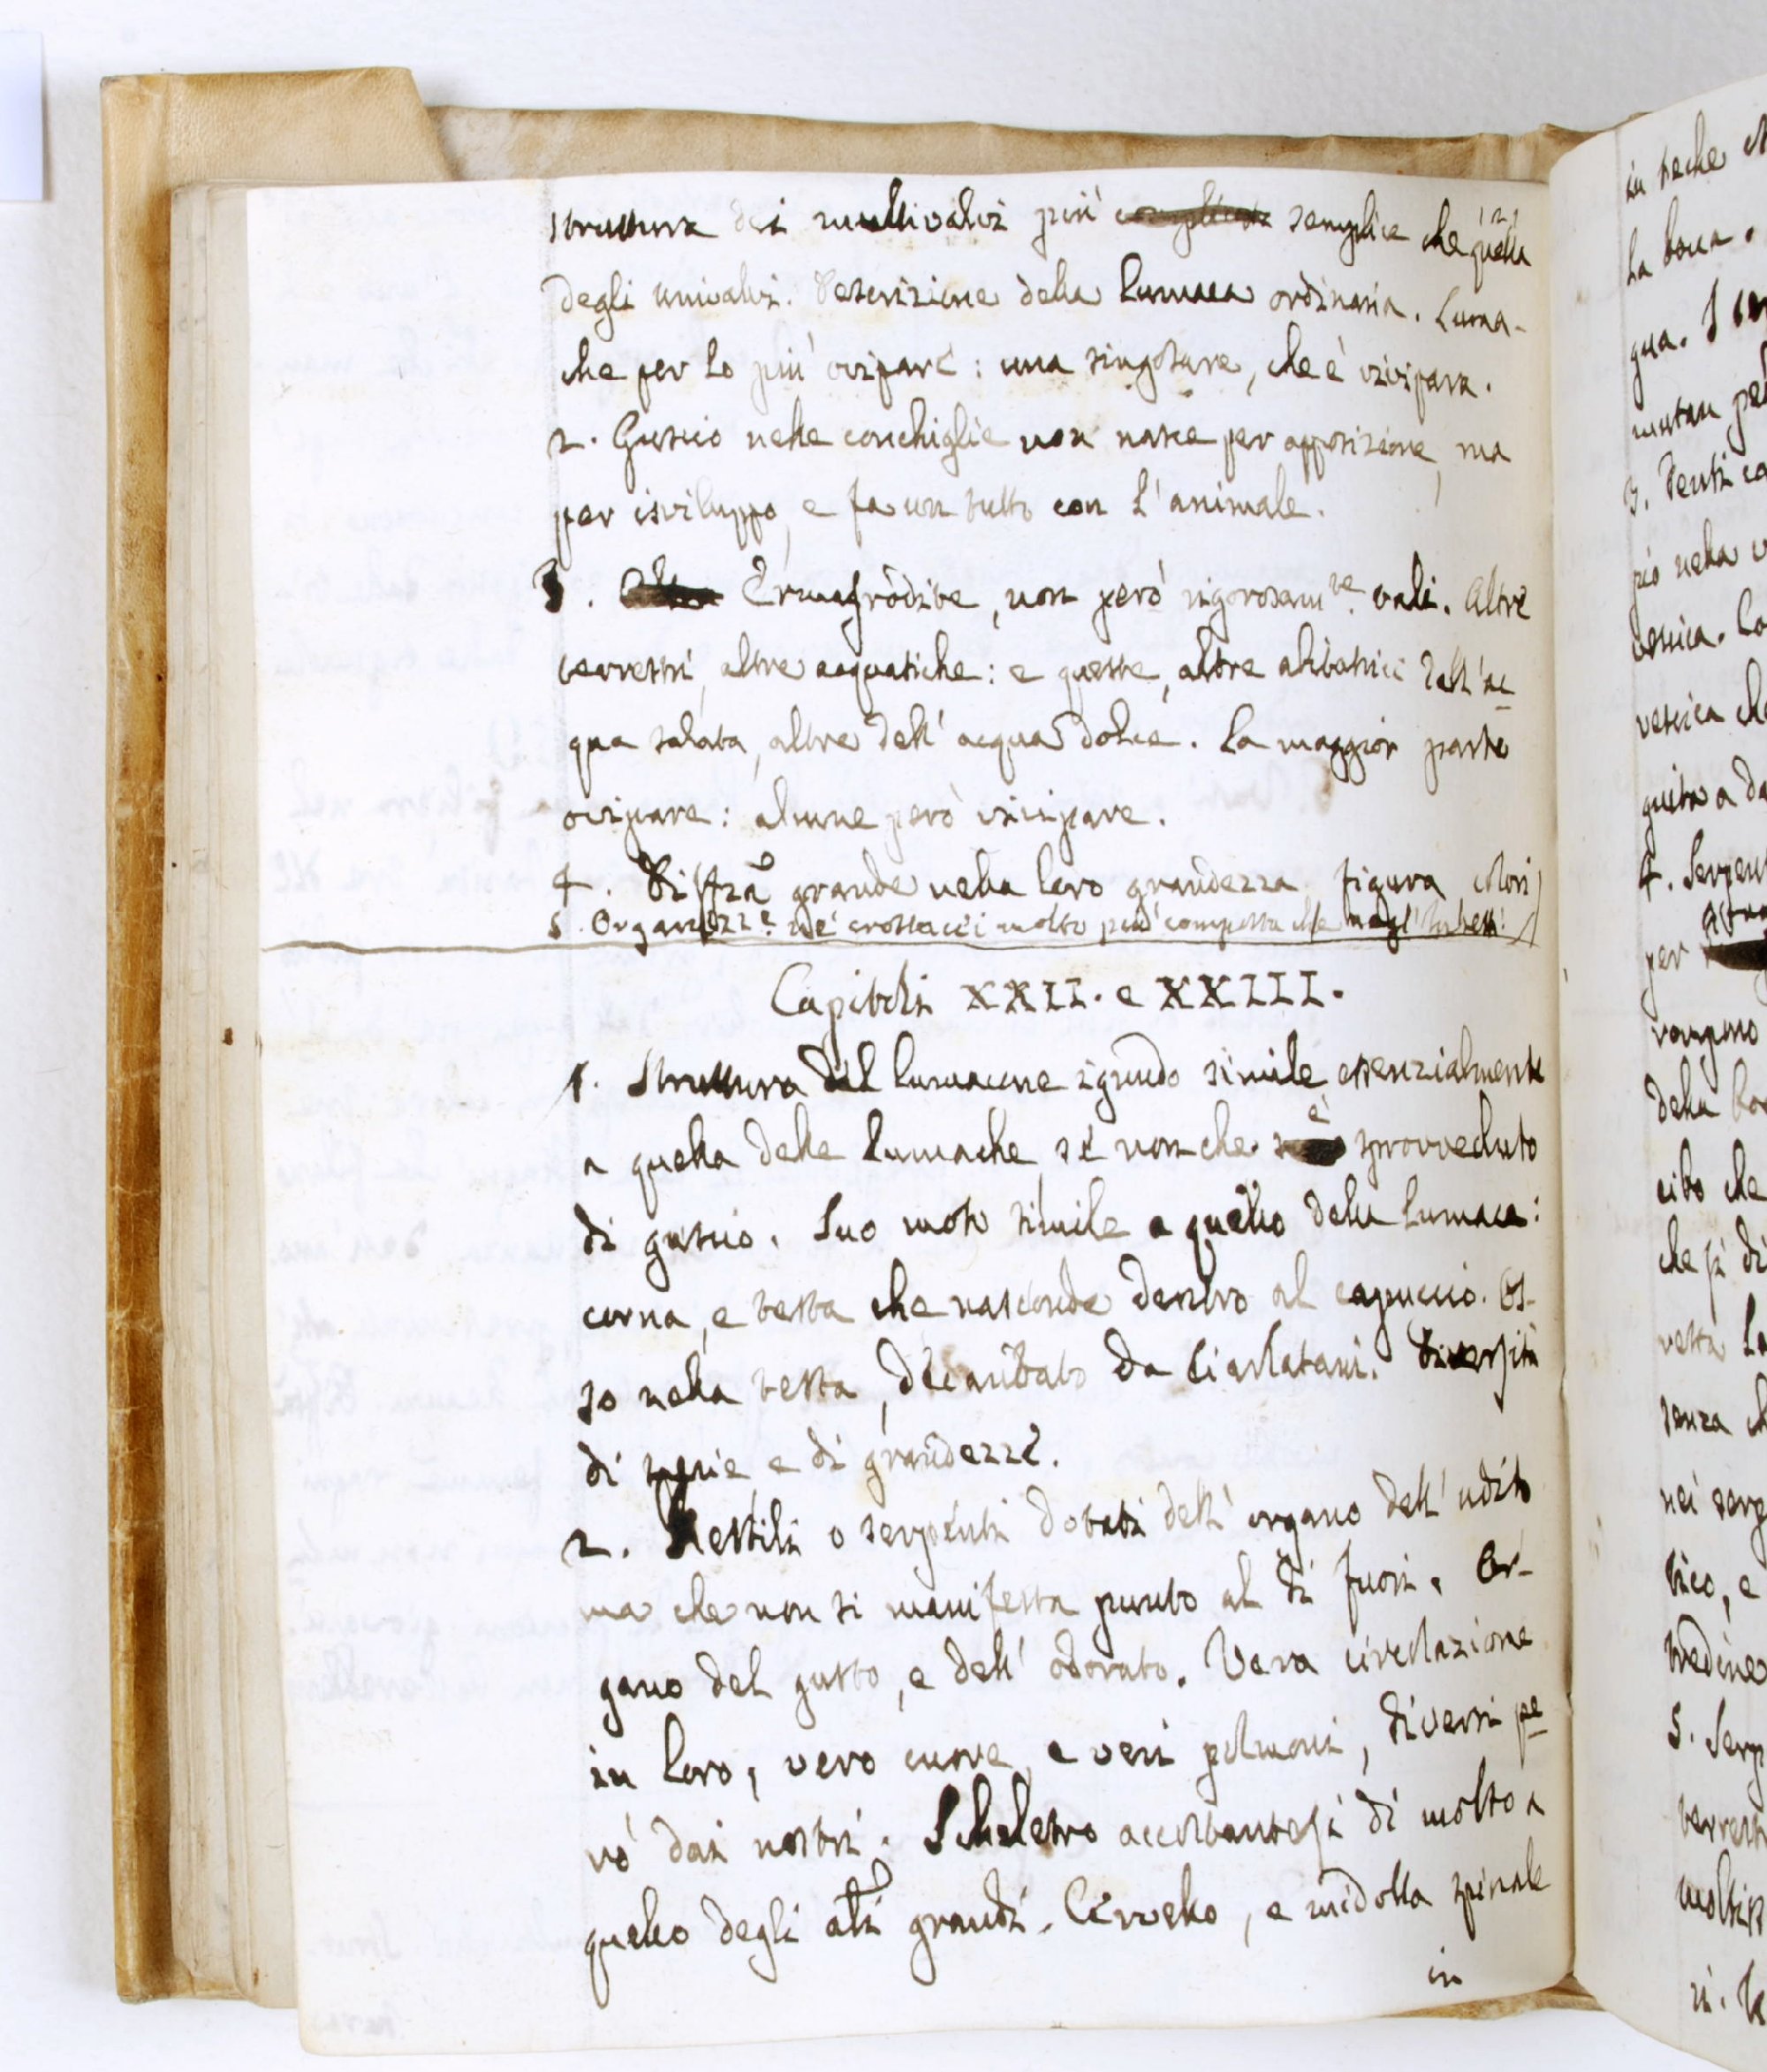 struttura dei multivalvi più complicata semplice che quella
degli univalvi. Descrizione della lumaca ordinaria. Luma-
che per lo più ovipare: una singolare, che è vivipara.
2. Guscio nelle conchiglie non nasce per apposizione, ma
per isviluppo, e fa un tutto con l'animale.
3. Ermafrodite, non però rigorosam.te tali. Altre
terrestri, altre acquatiche: e queste, altre abitatrici dell'ac
qua salata, altre dell'acqua dolce. La maggior parte
ovipare: alcune però vivipare.
4. Diffza grande nella loro grandezza, figura, colori
5. Organizz.e ne' crostacei molto più composta che negl'Insetti.
Capitoli XXII. e XXIII.
1. Struttura del lumacone ignudo simile essenzialmente
a quella delle lumache, se non che è sprovveduto
di guscio. Suo moto simile a quello della lumaca:
corna, e testa che nasconde dentro al capuccio. Os-
so nella testa, decantato da Ciarlatani. Diversità
di specie e di grandezze.
2. Rettili o serpenti dotati dell'organo dell'udito
ma che non si manifesta punto al di fuori. Or-
gano del gusto, e dell'odorato. Vera circolazione
in loro, vero cuore, e veri polmoni, diversi pe
rò dai nostri. Scheletro accostantesi di molto a
quello degli ali grandi. Cervello, e midolla spinale
in
in
la bocca.
gua.
mutan
3. Denti
nella
vescica.
vescica
4.
per
vengono
della
cibo che
che si di
senza
nei
tico, e
5.
terrestri